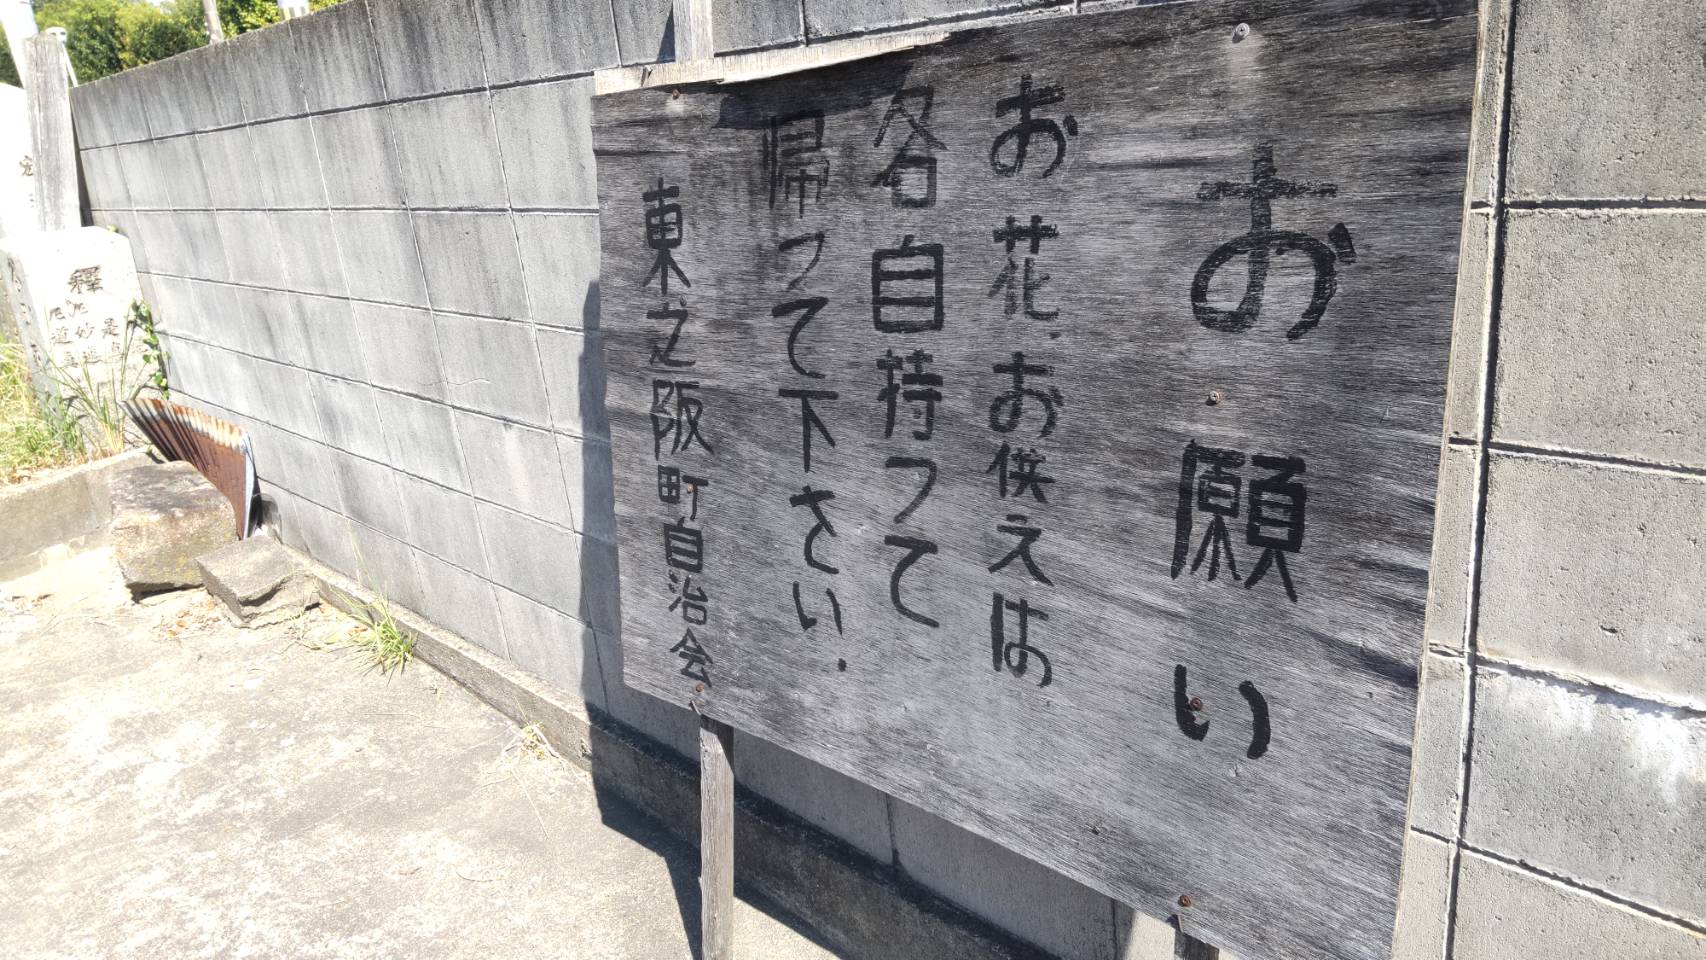 お願い
お花、お供えは
各自持って
帰って下さい.
東之阪町自治会
釋